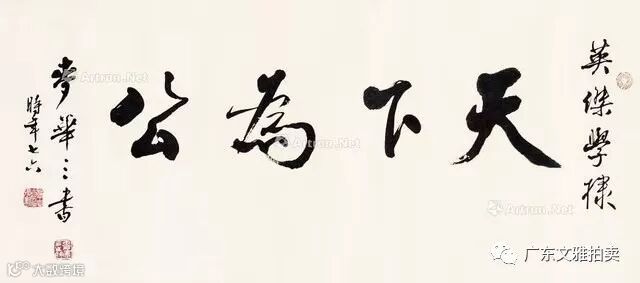 英傑學棣
天下為公
麥華三書
時年七六
Artron.Net
Artron.Net
Artron.Net
Artron.Net
广东文雅拍卖
大数跨境